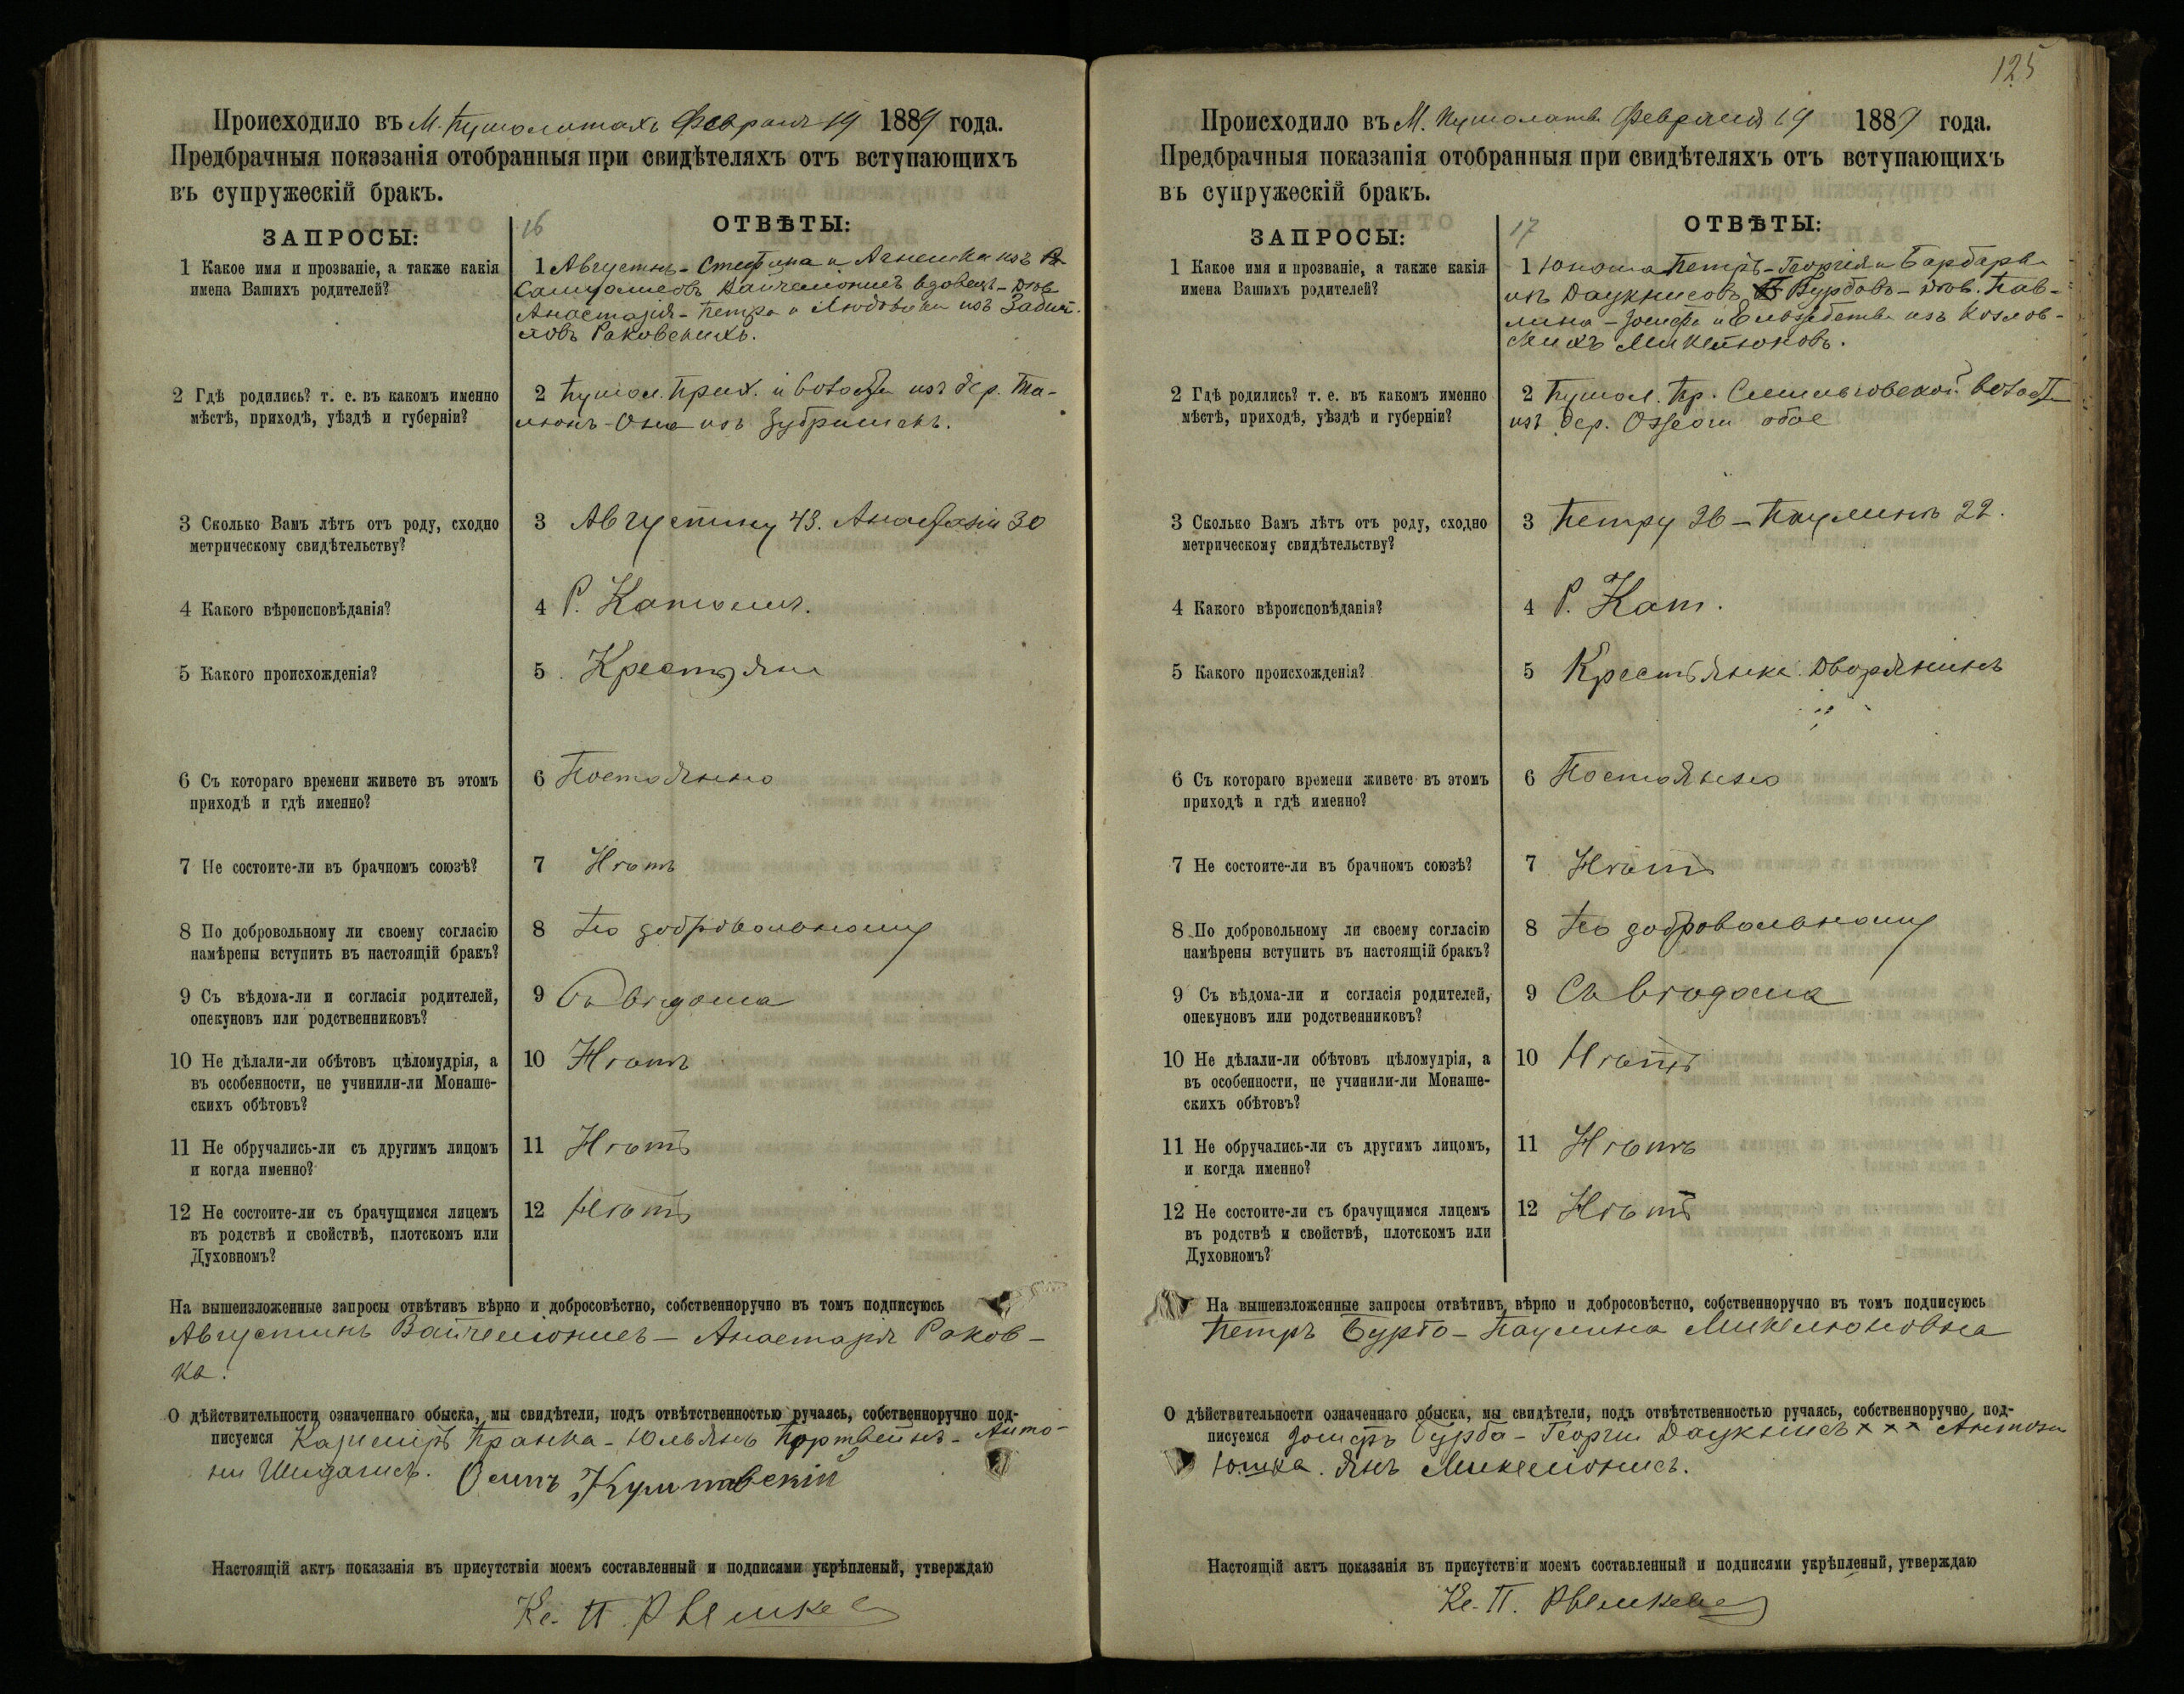 125
Происходило въ М. Пушолатахъ Февраля 19 1889 года.
Предбрачныя показанія отобранныя при свидѣтеляхъ отъ вступающихъ
въ супружескій бракъ.
16
ЗАПРОСЫ:
ОТВѢТЫ:
1 Какое имя и прозваніе, а также какія
имена Вашихъ родителей?
1 Августинъ - Стефана и Агнешки изъ
вдовецъ - дѣв.
Анастазія - Петра и Людовики изъ
Раковскихъ.
2 Гдѣ родились? т. е. въ какомъ именно
мѣстѣ, приходѣ, уѣздѣ и губерніи?
2 Пушол. Прих. и волости изъ дер. Та-
Она изъ
3 Сколько Вамъ лѣтъ отъ роду, сходно
метрическому свидѣтельству?
3 Августину 43. Анастазіи 30
4 Какого вѣроисповѣданія?
4 Р. Католич.
5 Какого происхожденія?
5 Крестьяне
6 Съ котораго времени живете въ этомъ
приходѣ и гдѣ именно?
6 Постоянно
7 Не состоите-ли въ брачномъ союзѣ?
7 Нѣтъ
8 По добровольному ли своему согласію
намѣрены вступить въ настоящій бракъ?
8 По добровольному
9 Съ вѣдома-ли и согласія родителей,
опекуновъ или родственниковъ?
9 Съ вѣдома
10 Не дѣлали-ли обѣтовъ цѣломудрія, а
въ особенности, не учинили-ли Монаше-
скихъ обѣтовъ?
10 Нѣтъ
11 Не обручались-ли съ другимъ лицомъ
и когда именно?
11 Нѣтъ
12 Не состоите-ли съ брачущимся лицемъ
въ родствѣ и свойствѣ, плотскомъ или
Духовномъ?
12 Нѣтъ
На вышеизложенные запросы отвѣтивъ вѣрно и добросовѣстно, собственноручно въ томъ подписуюсь
Августинъ Вайчелюнисъ - Анастазія Раков-
ка.
О дѣйствительности означеннаго обыска, мы свидѣтели, подъ отвѣтственностью ручаясь, собственноручно под-
писуемся Казиміръ Пранка - Юльянъ - Анто-
ни Шидагисъ. Осипъ
Настоящій актъ показанія въ присутствіи моемъ составленный и подписями укрѣпленый, утверждаю
Кс. П.
Происходило въ М. Пушолаты Февраля 19 1889 года.
Предбрачныя показанія отобранныя при свидѣтеляхъ отъ вступающихъ
въ супружескій бракъ.
17
ЗАПРОСЫ:
ОТВѢТЫ:
1 Какое имя и прозваніе, а также какія
имена Вашихъ родителей?
1 Юноша Петръ - Георгія и Барбары
изъ Даукнисовъ Бурбовъ - дѣв. Пав-
лина - Іосифа и Елизабеты изъ Козлов-
скихъ Микелюновъ.
2 Гдѣ родились? т. е. въ какомъ именно
мѣстѣ, приходѣ, уѣздѣ и губерніи?
2 Пушол. Пр. волости
изъ дер. обое
3 Сколько Вамъ лѣтъ отъ роду, сходно
метрическому свидѣтельству?
3 Петру 26 - Паулинѣ 22.
4 Какого вѣроисповѣданія?
4 Р. Кат.
5 Какого происхожденія?
5 Крестьянка. Дворянинъ
6 Съ котораго времени живете въ этомъ
приходѣ и гдѣ именно?
6 Постоянно
7 Не состоите-ли въ брачномъ союзѣ?
7 Нѣтъ
8 По добровольному ли своему согласію
намѣрены вступить въ настоящій бракъ?
8 По добровольному
9 Съ вѣдома-ли и согласія родителей,
опекуновъ или родственниковъ?
9 Съ вѣдома
10 Не дѣлали-ли обѣтовъ цѣломудрія, а
въ особенности, не учинили-ли Монаше-
скихъ обѣтовъ?
10 Нѣтъ
11 Не обручались-ли съ другимъ лицомъ,
и когда именно?
11 Нѣтъ
12 Не состоите-ли съ брачущимся лицемъ
въ родствѣ и свойствѣ, плотскомъ или
Духовномъ?
12 Нѣтъ
На вышеизложенные запросы отвѣтивъ вѣрно и добросовѣстно, собственноручно въ томъ подписуюсь
Петръ Бурбо - Паулина Микелюновна
О дѣйствительности означеннаго обыска, мы свидѣтели, подъ отвѣтственностью ручаясь, собственноручно под-
писуемся Іосифъ Бурба - Георги Даукнисъ х х х Антони
Юшка. Янъ Микелюнисъ.
Настоящій актъ показанія въ присутствіи моемъ составленный и подписями укрѣпленый, утверждаю
Кс. П.